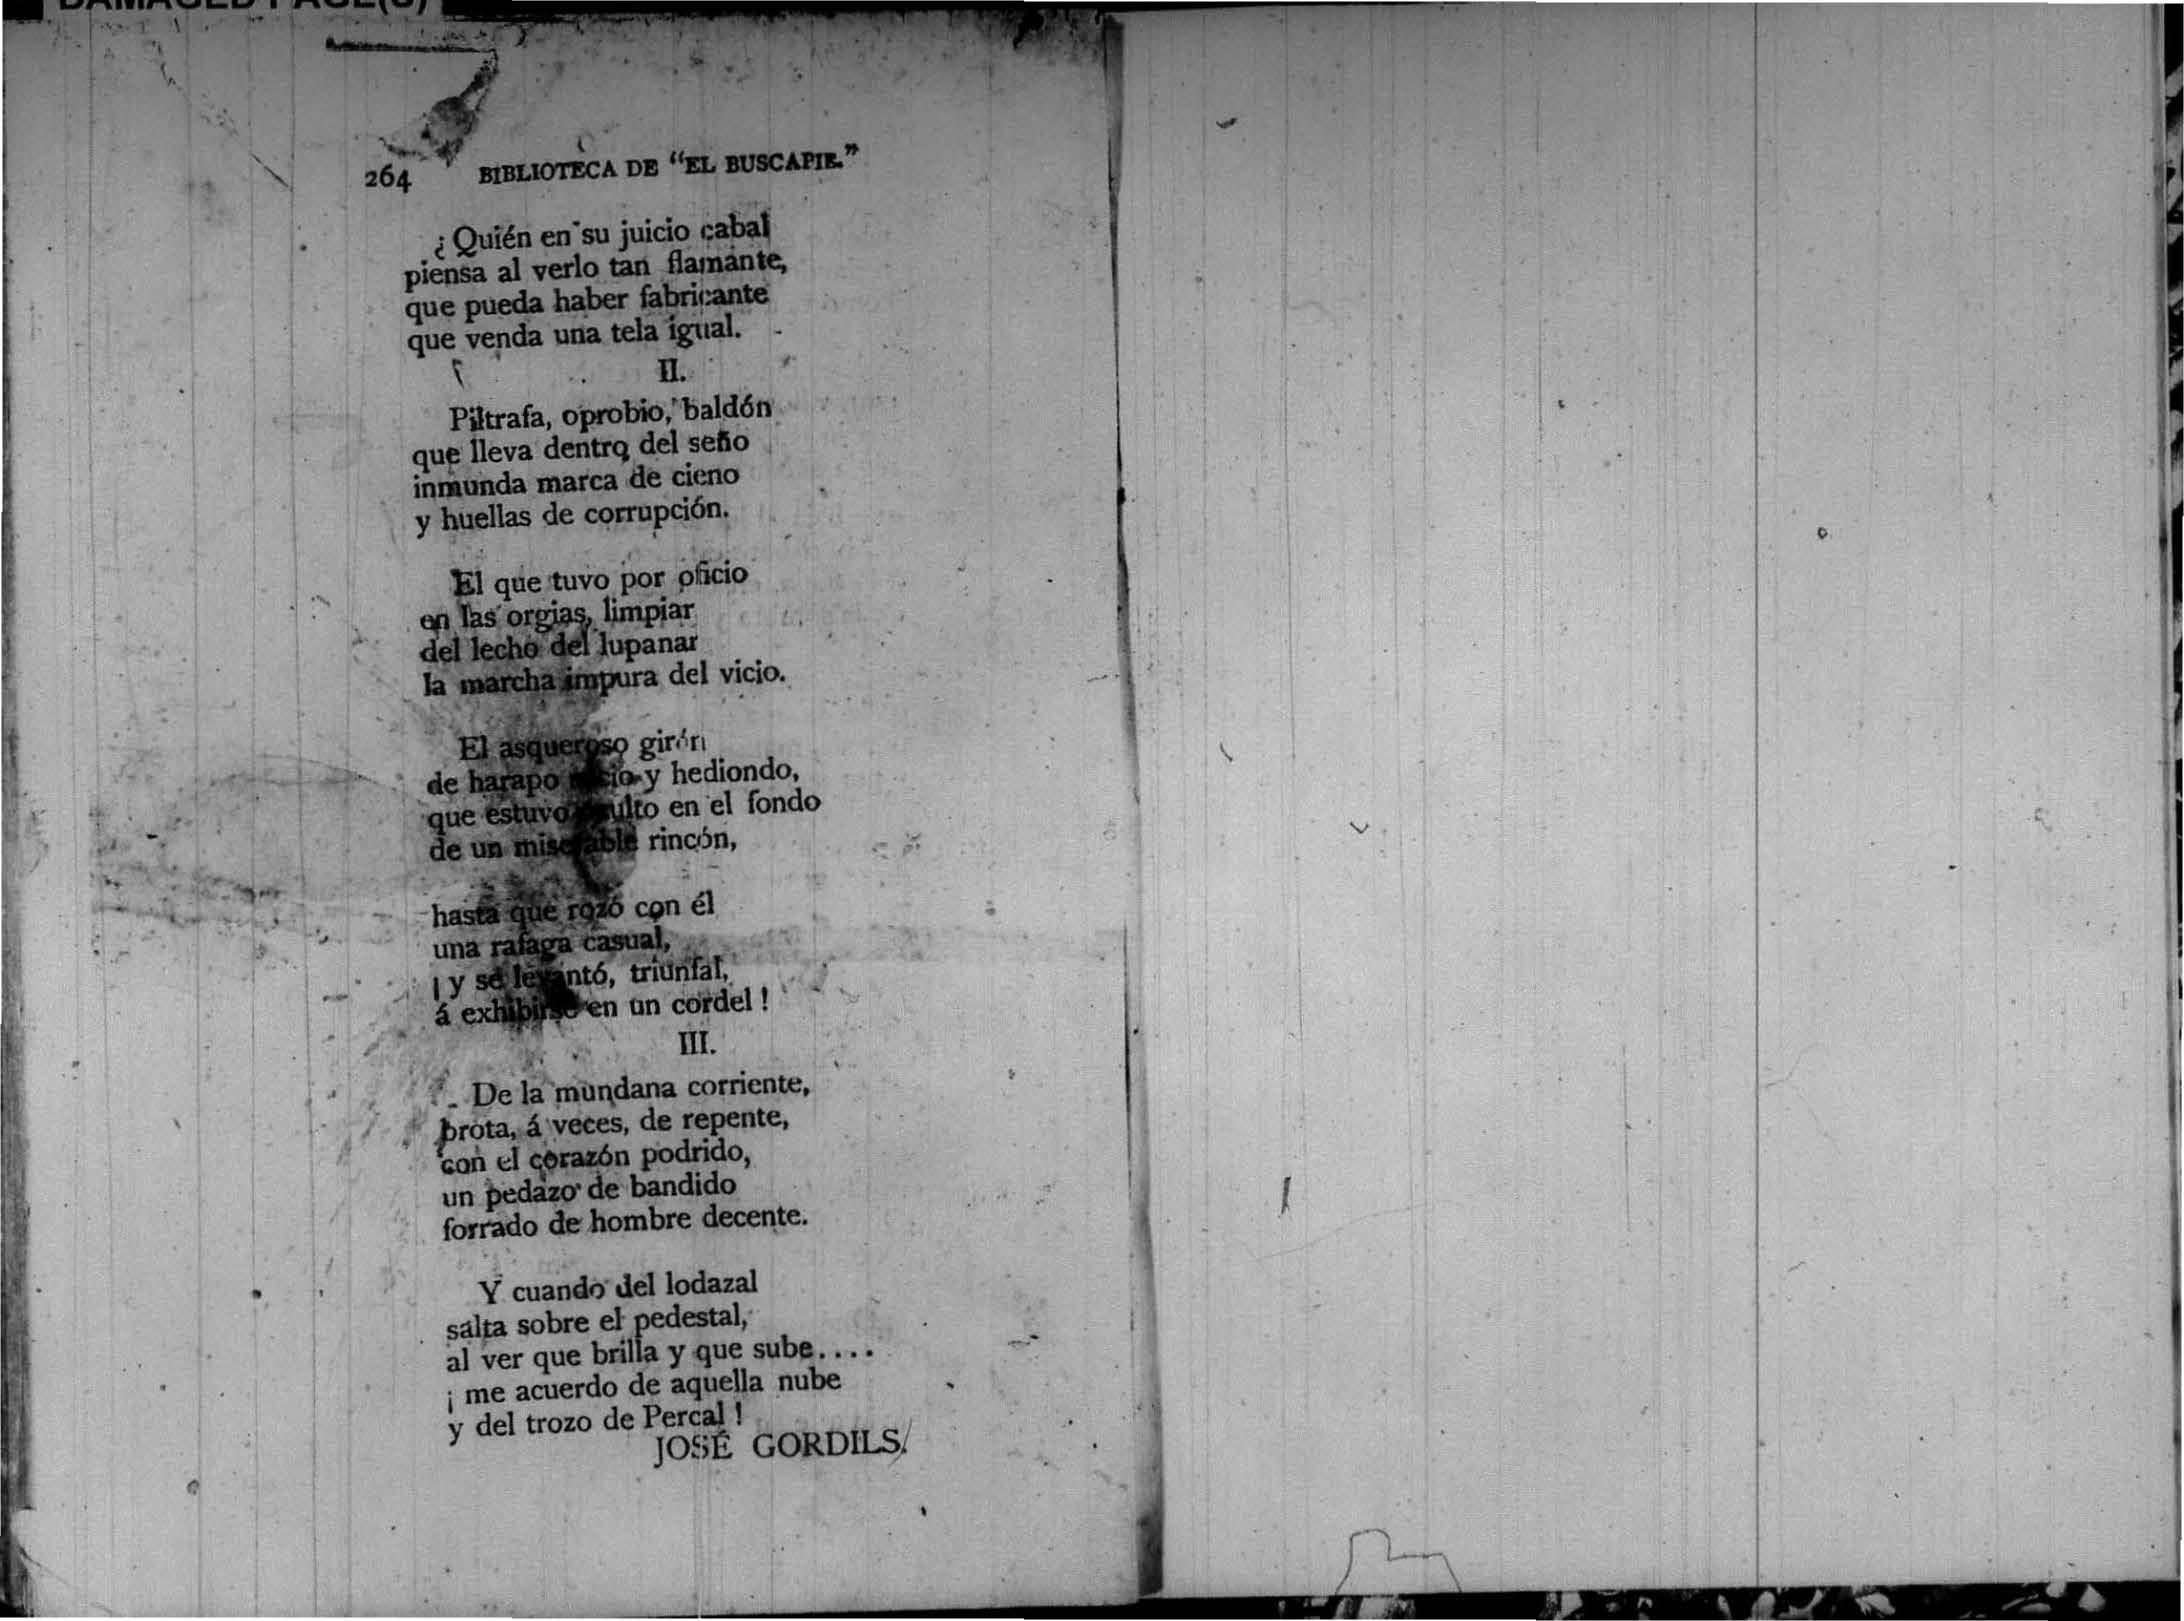 DAMAGED PAGE(S)
264 BIBLIOTECA DE "EL BUSCAPIE."
¿Quién en su juicio cabal
piensa al verlo tan flamante,
que pueda haber fabricante
que venda una tela igual.
II.
Piltrafa, oprobio, baldón
que lleva dentro del seño
inmunda marca de cieno
y huellas de corrupción.
El que tuvo por oficio
en las orgias, limpiar
del lecho del lupanar
la marcha impura del vicio.
El asqueroso girón
de harapo y hediondo,
que estuvo en el fondo
de un miserable rincón,
hasta que rozó con él
una rafaga casual,
¡y se levantó, triunfal,
á exhibirse en un cordel!
III.
De la mundana corriente,
brota, á veces, de repente,
con el corazón podrido,
un pedazo de bandido
forrado de hombre decente.
Y cuando del lodazal
salta sobre el pedestal,
al ver que brilla y que sube....
¡me acuerdo de aquella nube
y del trozo de Percal!
JOSÉ GORDILS.